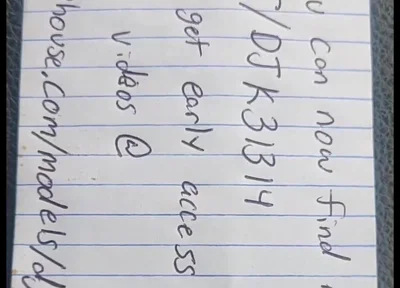 u can now find
/DJK31314
get early access
videos @
house.com/models/d